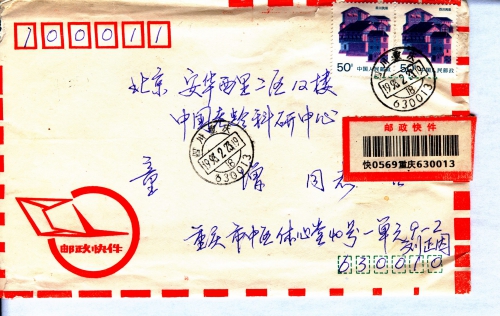 100011
50分 中国人民邮政
50分 中国人民邮政
北京 安华西里二区12楼
中国老龄科研中心
邮政快件
快0569重庆630013
630013
630013
同志
重庆市中区体心堂40号一单元9-2
邮政快件
630010